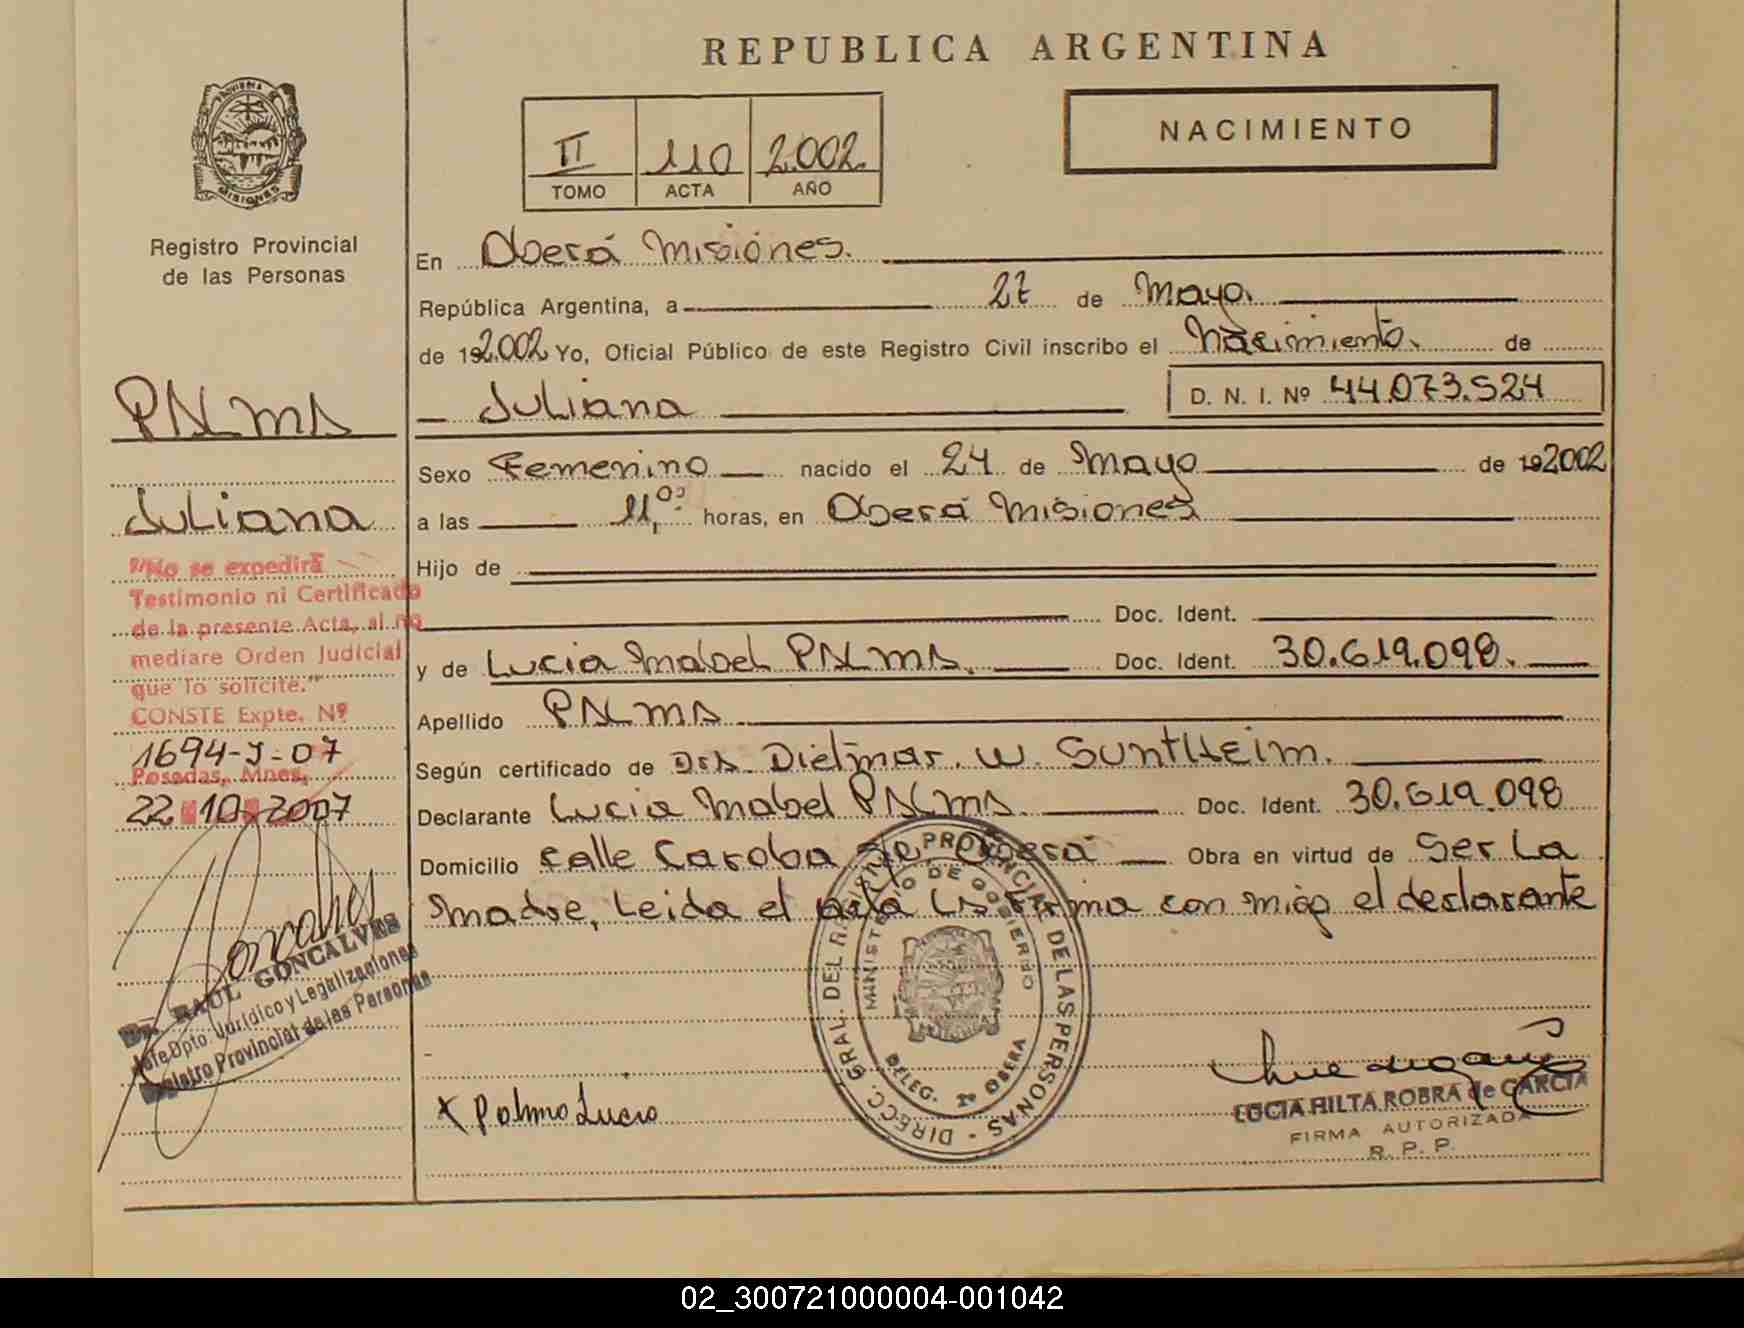 REPUBLICA ARGENTINA
NACIMIENTO
II 110 2.002.
TOMO ACTA AÑO
PROVINCIA DE
MISIONES
Registro Provincial
de las Personas
PALMA
Juliana
"No se expedirá
Testimonio ni Certificado
de la presente Acta, al no
mediare Orden Judicial
que lo solicite."
CONSTE Expte. Nº
1694-J-07
Posadas, Mnes,
22-10-2007
Goncalves
Dr. RAUL GONCALVES
Jefe Dpto. Jurídico y Legalizaciones
Registro Provincial de las Personas
En Oberá Misiones.
República Argentina, a 27 de Mayo.
de 192.002 Yo, Oficial Público de este Registro Civil inscribo el Nacimiento. de
Juliana D. N. I. Nº 44.073.524
Sexo Femenino nacido el 24 de Mayo de 192002
a las 11,00 horas, en Oberá Misiones
Hijo de
Doc. Ident.
y de Lucia Mabel PALMA. Doc. Ident. 30.619.098.
Apellido PALMA
Según certificado de Dra. Dietmar. W. Suntheim.
Declarante Lucia Mabel PALMA. Doc. Ident. 30.619.098
Domicilio calle Caroba Oberá Obra en virtud de Ser La
Madre, Leida el acta La Firma con migo el declarante
DIRECC. GRAL. DEL REGISTRO PROVINCIAL DE LAS PERSONAS -
MINISTERIO DE GOBIERNO
DELEG. 1º OBERA
x Palma Lucia
LUCIA HILTA ROBRA de GARCIA
FIRMA AUTORIZADA
R. P. P.
02_300721000004-001042